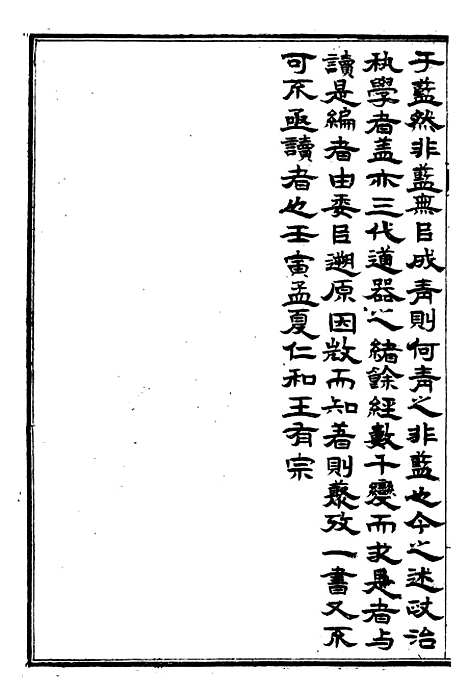 于藍然非藍無㠯成青則何青之非藍也今之述政治
執學者盖亦三代道器之緒餘經數千變而求是者与
讀是編者由委㠯遡原因㪚而知著則蓺攷一書又不
可不亟讀者也壬寅孟夏仁和王有宗